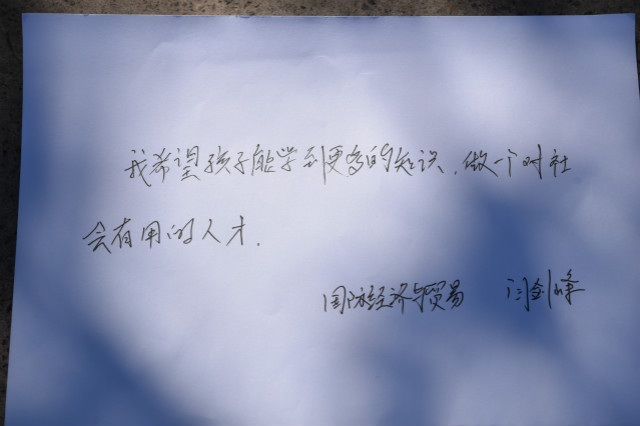 我希望孩子能学到更多的知识，做一个对社
会有用的人才.
国际经济与贸易 闫剑峰